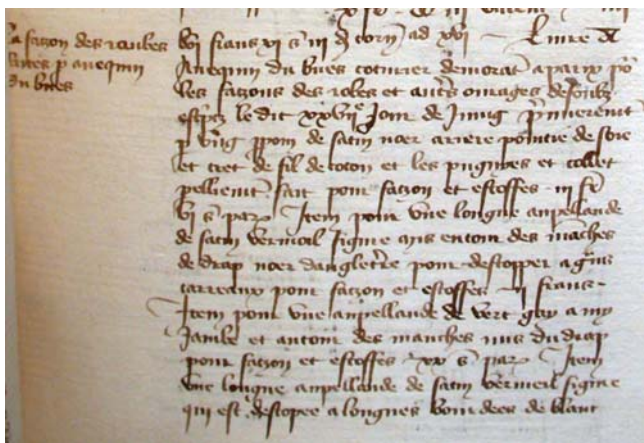 la fazon des roubes
faites p anequin
du bues
vi frans xi s iii d torn ad xvi Livre
Anequin du bues coturier demorat a paris po
les fazons des robes et autres ouvrages desoubz
le dit xxvii e Jour de Juing
p ung ppoin de satin noer arriere pointie de soie
et tret de fil de coton et les pugnies et collet
fait pour fazon et estoffes iii fr
vi s par Item pour une longue aupellande
de satin vermeil figure mis entour des maches
de drap noer dangleterre pour destopper a gns
carreaux pour fazon et estoffes ii frans
Item pour une aupellande de vert gay a my
Jambe et autour des manches mis du drap
pour fazon et estoffes xx s par Item
une longue aupellande de satin vermeil figure
qui est destopee a longues bendees de blanc